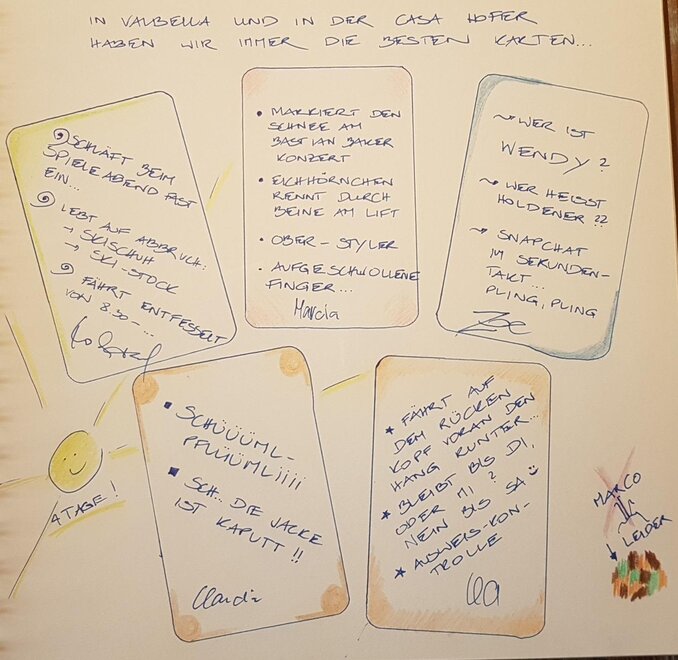 IN VALBELLA UND IN DER CASA HOFER
HABEN WIR IMMER DIE BESTEN KARTEN...
SCHLÄFT BEIM
SPIELEABEND FAST
EIN...
LEBT AUF ABBRUCH:
→ SKISCHUH
→ SKI-STOCK
FÄHRT ENTFESSELT
VON 8.30-...
• MARKIERT DEN
SCHNEE AM
BASTIAN BAKER
KONZERT
• EICHHÖRNCHEN
RENNT DURCH
BEINE AM LIFT
• OBER-STYLER
• AUFGESCHWOLLENE
FINGER...
Marcia
WER IST
WENDY?
WER HEISST
HOLDENER??
SNAPCHAT
IM SEKUNDEN-
TAKT...
PLING, PLING
SCHÜÜÜML-
PFLÜÜMLIIII
SCH... DIE JACKE
IST KAPUTT!!
Claudia
★ FÄHRT AUF
DEM RÜCKEN
KOPF VORAN DEN
HANG RUNTER...
★ BLEIBT BIS DI,
ODER MI?
NEIN BIS SA ☺
★ AUSWEIS-KON-
TROLLE
4 TAGE!
MARCO
LEIDER